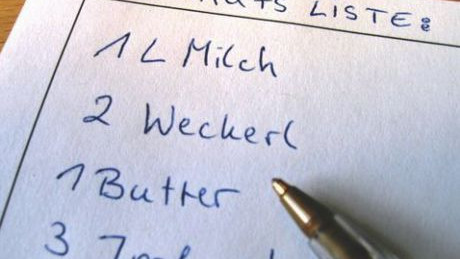 LISTE:
1 L Milch
2 Weckerl
1 Butter
3